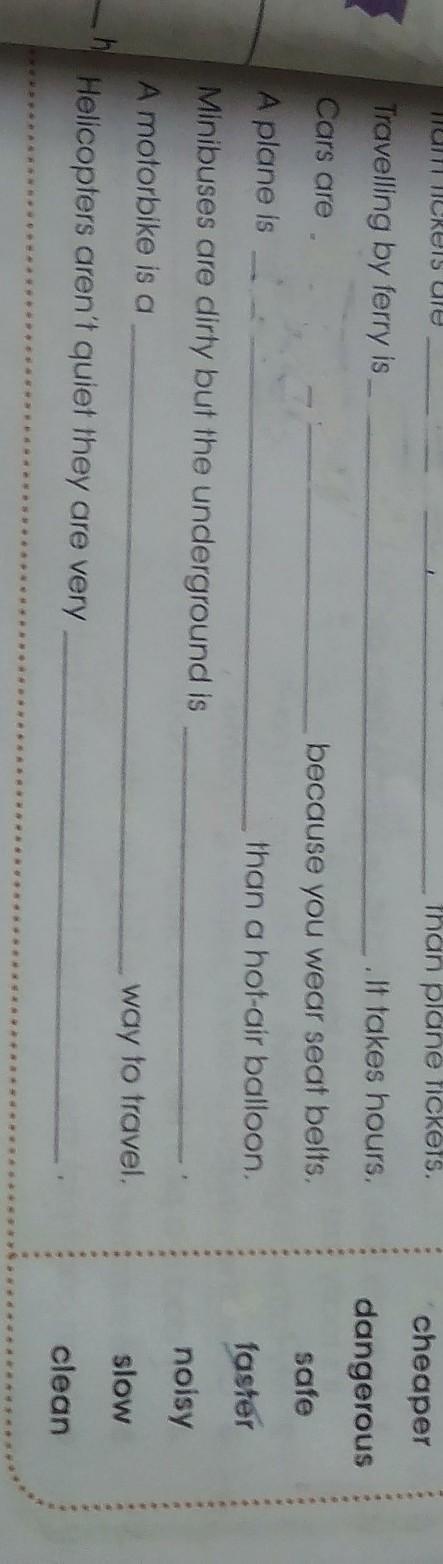 tickets are ____ than plane tickets. cheaper
Travelling by ferry is ____. It takes hours. dangerous
Cars are ____ because you wear seat belts. safe
A plane is ____ than a hot-air balloon. faster
Minibuses are dirty but the underground is ____. noisy
A motorbike is a ____ way to travel. slow
Helicopters aren't quiet they are very ____. clean